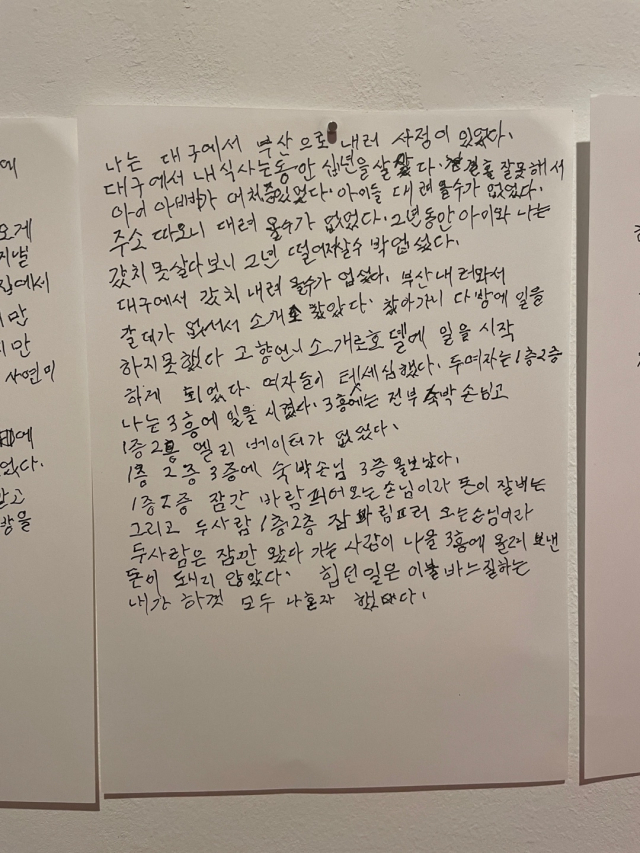 나는 대구에서 부산으로 내러 사정이 있었다.
대구에서 내 식사는동안 십년을 살았다. 결혼 잘못해서
아이 아빠가 있었다. 아이들 대려 올수가 없었다.
주소 따오니 대려 올수가 없었다. 2년동안 아이와 나는
갔치 못살다보니 2년 떨어저살수 박업섰다.
대구에서 갔치 내려 올수가 업섰다. 부산내러와서
갈데가 없서서 소개소 찼았다. 찼아가니 다방에 일을
하지못했다 고향언니소개로호텔에 일을 시작
하게 되었다. 여자들이 텃세심했다. 두여자는1층2층
나는3층에 일을 시켰다. 3층에는 전부 숙박 손님고
1층2층 엘리베이터가 없었다.
1층 2층 3층에 숙박손님 3층올보났다.
1층2층 잠간 바람피어오는손님이라 돈이 잘버는
그리고 두사람 1층2층 잠 바림프러 오는손님이라
두사람은 잠깐 왔다 가는 사감이 나을 3층에 올려 보낸
돈이 돼지 않았다. 힘던일은 이불바느질하는
내가 하껏 모두 나혼자 했다.
에
오게
지낼
집에서
만
만
사연이
에
었다.
고
방을